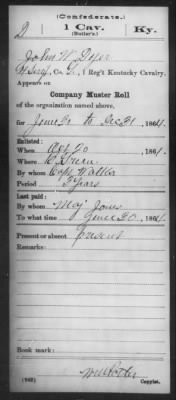 (Confederate.)
D 1 Cav. Ky.
(Butler's.)
John W. Dyer
Co. D, 1 Reg't Kentucky Cavalry.
Appears on
Company Muster Roll
of the organization named above,
for June 30 to Dec 31, 1864.
Enlisted:
When Oct 20, 1861.
Where B. Green
By whom Capt Walker
Period 3 years
Last paid:
By whom Maj Jones
To what time June 30, 1864.
Present or absent present
Remarks:
Book mark:
(642)
Copyist.